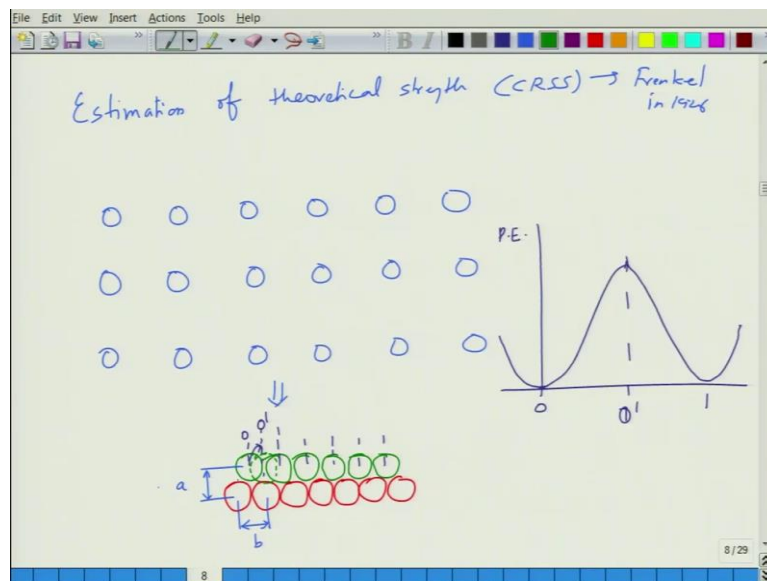 File Edit View Insert Actions Tools Help
B I
Estimation of theoretical strength (CRSS) → Frenkel
in 1926
P.E.
0 0' 1
0 0' 1 1 1 1 1
a
b
8/29
8